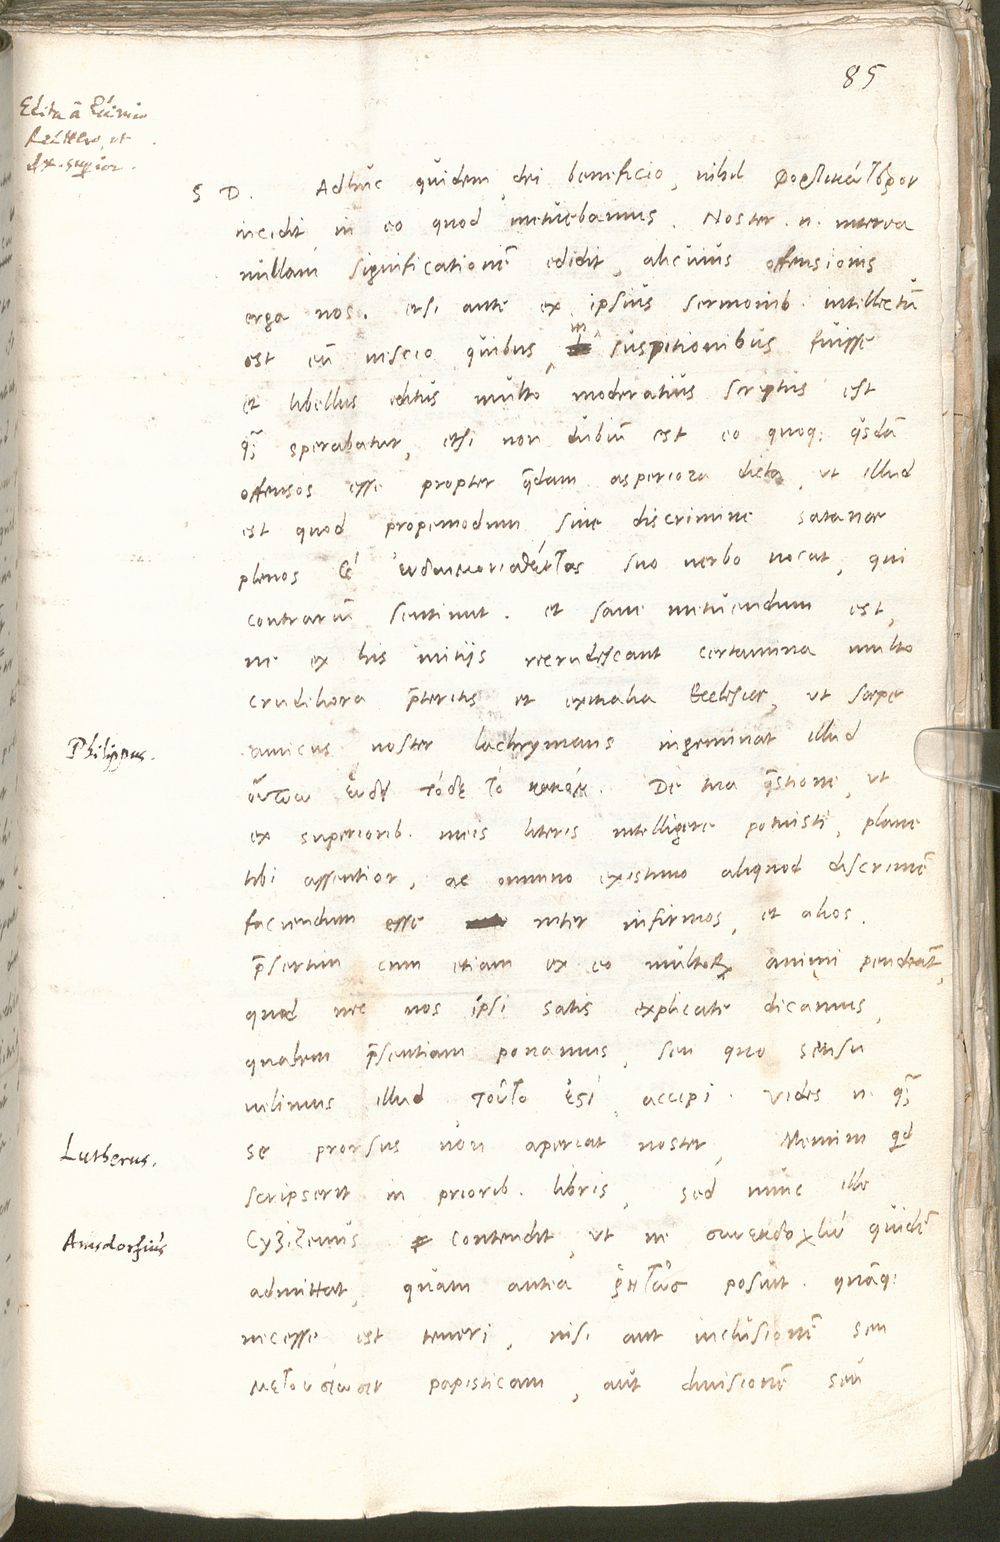 85
Edita à
et
S D. Adhuc quidem dei beneficio, nihil φορτικώτερον
incidit in eo quod metuebamus. Noster .n. interea
nullam significationē edidit, alicuius offensionis
erga nos. etsi ante ex ipsius sermonib. intellectū
est eū nescio quibus in suspitionibus fuisse
et libellus editus multo moderatius scriptus est
q̄ sperabatur, etsi non dubiū est eo quoq; q̄sdā
offensos esse propter q̄dam asperiora dicta, ut illud
est quod propemodum sine discrimine satanae
plenos suo verbo vocat, qui
contrariū sentiunt. et sane metuendum est,
ne ex his initijs recrudescant certamina multo
crudeliora p̄teritis et exitialia Ecclesiae, ut saepe
Philippus.
amicus noster lachrymans ingeminat illud
οὔπω εὕδει τόδε τὸ κακόν. De tua q̄stione, ut
ex superiorib. meis literis intelligere potuisti, plane
tibi assentior, ac omnino existimo aliquod discrimē
faciendum esse inter infirmos, et alios.
p̄sertim cum etiam ex eo multorꝝ animi pendeāt,
quod nec nos ipsi satis explicate dicamus,
qualem p̄sentiam ponamus, seu quo sensu
velimus illud τοῦτο ἐςί accipi. vides n. q̄
Lutherus.
se prorsus non aperiat noster, Memini qd
scripserit in priorib. libris, sed nunc ille
Amsdorfius
Cyzizenus contendit, ut ne συνεκδοχὴν quidē
admittat, quam antea ῥητῶς posuit. quāq;
necesse est teneri, nisi aut inclusionē seu
μετουσίωσιν papisticam, aut divisionē seu